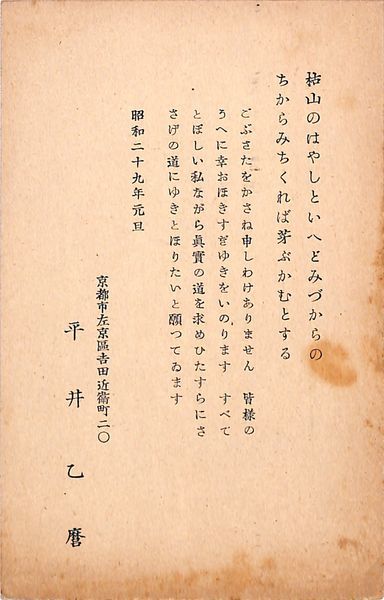 枯山のはやしといへどみづからの
ちからみちくれば芽ぶかむとする
ごぶさたをかさね申しわけありません 皆様の
うへに幸おほきすぎゆきをいのります すべて
とぼしい私ながら眞實の道を求めひたすらにさ
さげの道にゆきとほりたいと願つてゐます
昭和二十九年元旦
京都市左京區吉田近衞町二〇
平井乙麿